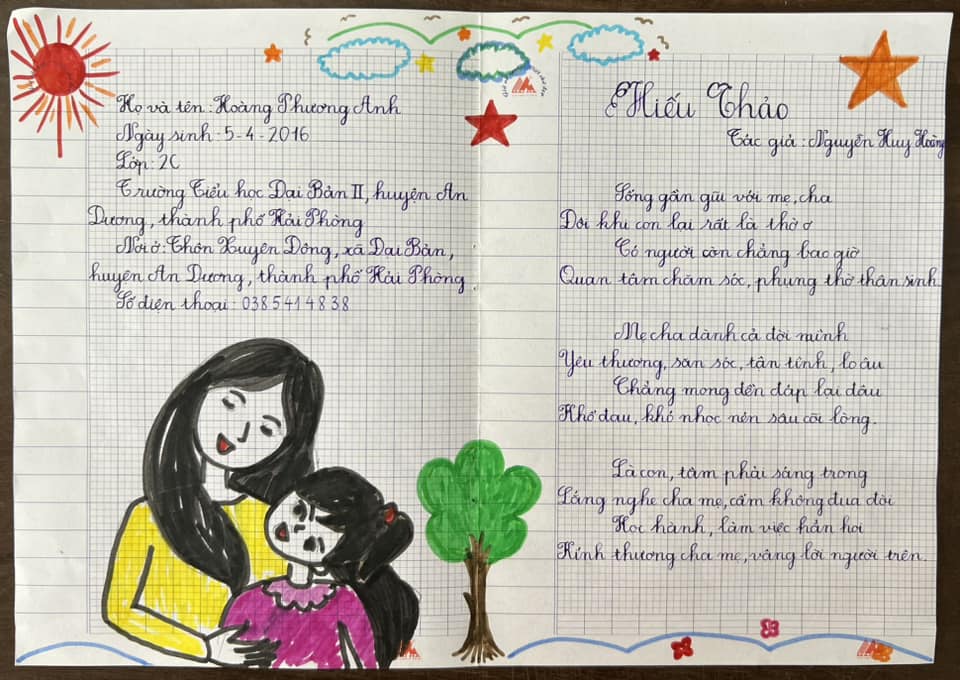 Họ và tên: Hoàng Phương Anh
Ngày sinh: 5-4-2016
Lớp: 2C
Trường Tiểu học Đại Bản II, huyện An
Dương, thành phố Hải Phòng
Nơi ở: Thôn Xuyên Đông, xã Đại Bản,
huyện An Dương, thành phố Hải Phòng.
Số điện thoại: 0385414838
Hiếu Thảo
Tác giả: Nguyễn Huy Hoàng
Sống gần gũi với mẹ, cha
Đôi khi con lại rất là thờ ơ
Có người còn chẳng bao giờ
Quan tâm chăm sóc, phụng thờ thân sinh.
Mẹ cha dành cả đời mình
Yêu thương, săn sóc, tận tình, lo âu
Chẳng mong đền đáp lại đâu
Khổ đau, khó nhọc nén sâu cõi lòng.
Là con, tâm phải sáng trong
Lắng nghe cha mẹ, cấm không đua đòi
Học hành, làm việc hẳn hoi
Kính thương cha mẹ, vâng lời người trên.